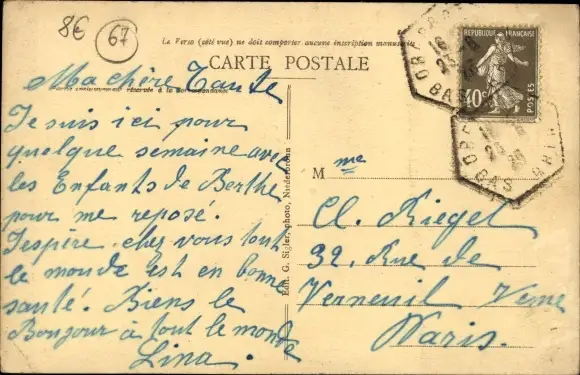 8€
67
Le Verso (côté vue) ne doit comporter aucune inscription manuscrite
CARTE POSTALE
réservée à la Correspondance
Ma chère Tante
Je suis ici pour
quelque semaine avec
les Enfants de Berthe
pour me reposé.
J'espère chez vous tout
le monde est en bonne
santé. Biens le
Bonjour à tout le monde
Lina.
Edit. G. Sigler, photo, Niederbronn
Mme
Cl. Riegel
32, Rue de
Verneuil Vème
Paris.
REPUBLIQUE FRANÇAISE
40c
POSTES
BAS RHIN